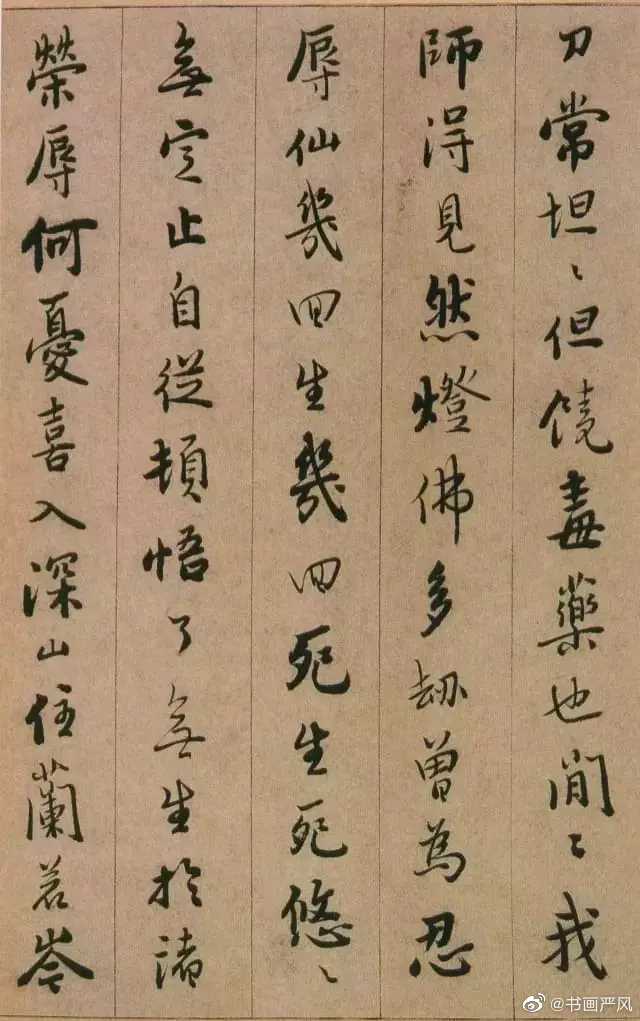 刀常坦〻但饶毒藥也閒〻我
師淂見然燈佛多劫曽為忍
辱仙幾回生幾回死生死悠〻
無定止自從頓悟了無生於諸
榮辱何憂喜入深山住蘭若岑
@书画严风